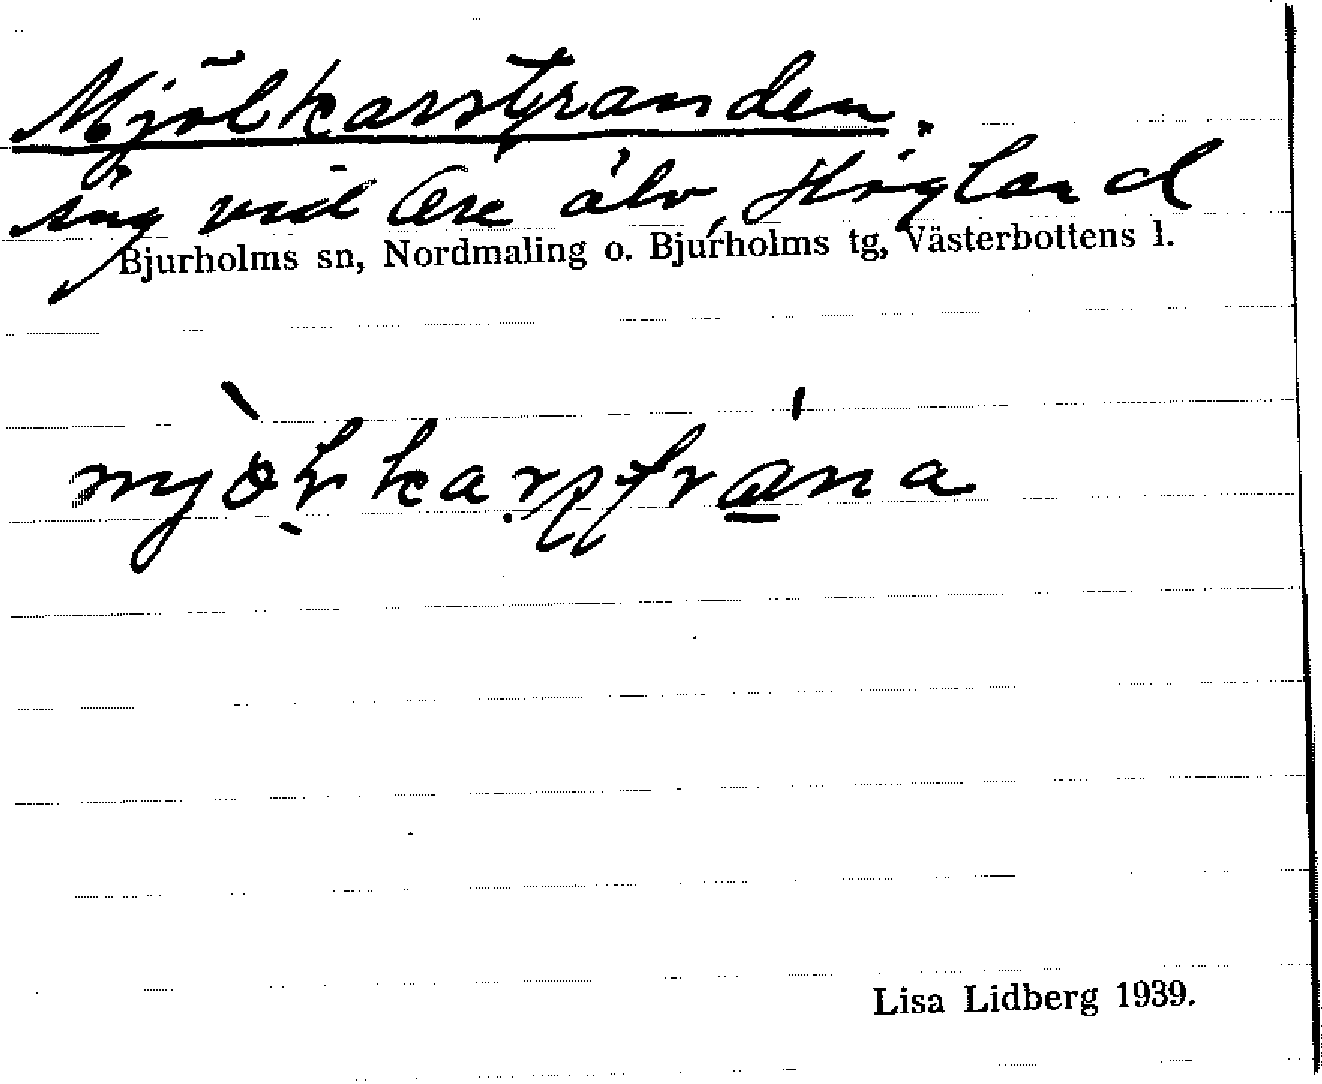 Mjölkarstranden.
äng vid Öre älv, Högland
Bjurholms sn, Nordmaling o. Bjurholms tg, Västerbottens l.
Lisa Lidberg 1939.